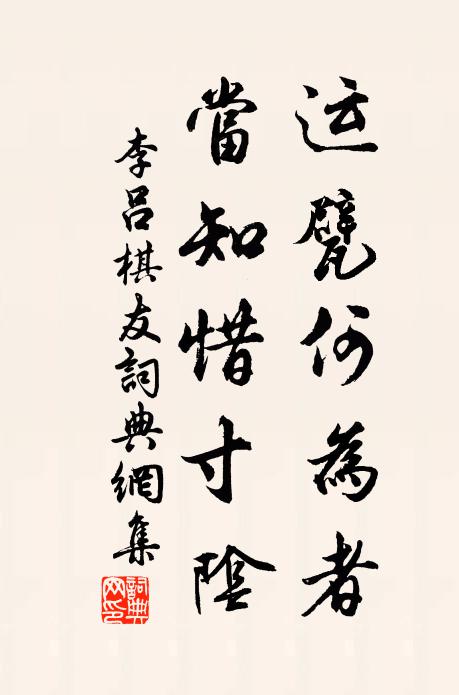 运甓何為者
當知惜寸陰
李吕棋友詞典網集
詞典
网印